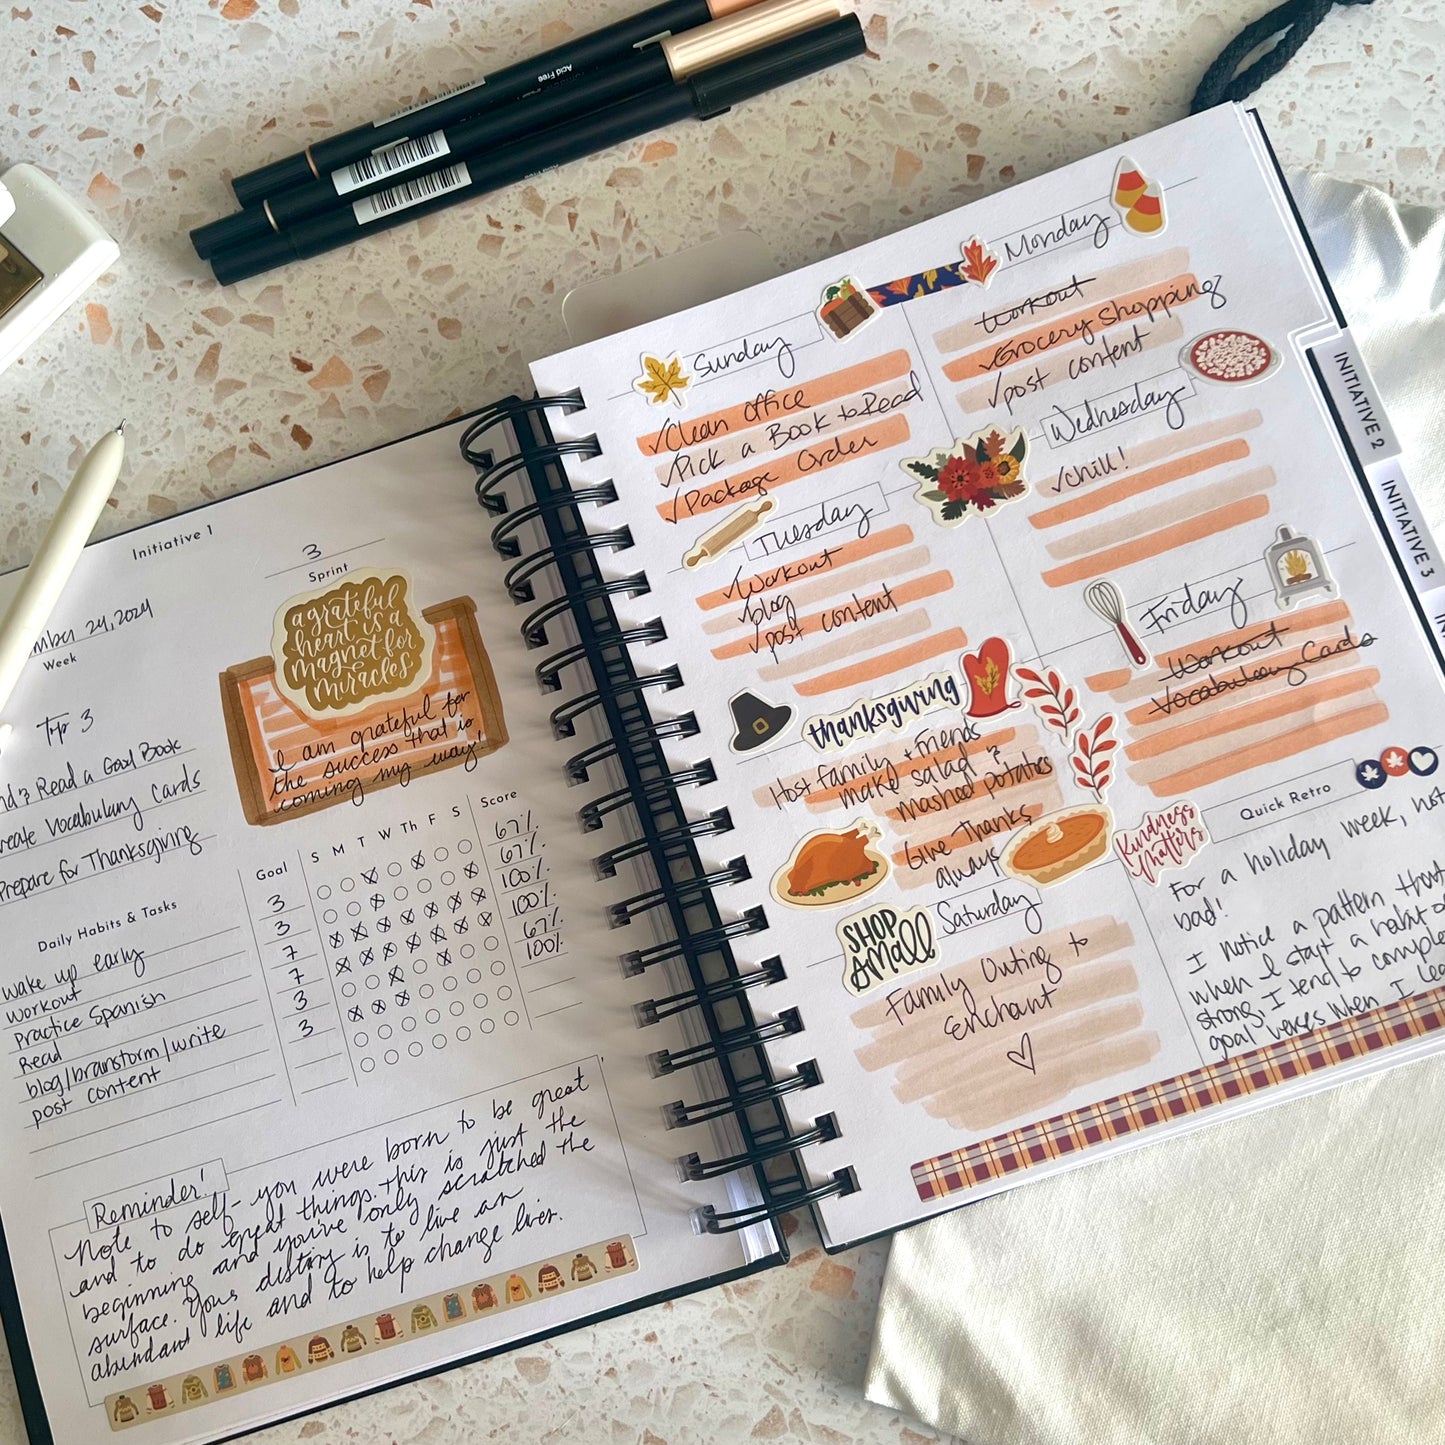 Acid Free
Initiative 1
3
Sprint
mber 24, 2024
Week
a grateful
heart is a
magnet for
miracles
I am grateful for
the success that is
coming my way!
Top 3
Read a Goal Book
reate Vocabulary Cards
Prepare for Thanksgiving
Daily Habits & Tasks
Goal S M T W Th F S Score
wake up early 3 67%
workout 3 67%
Practice Spanish 7 100%
Read 7 100%
blog/branstorm/write 3 67%
post content 3 100%
Reminder!
Note to self- you were born to be great
and to do great things. This is just the
beginning and you've only scratched the
surface. Your destiny is to live an
abundant life and to help change lives.
Sunday
✓Clean office
✓Pick a Book to Read
✓Package Order
Monday
Workout
✓Grocery Shopping
✓post content
Tuesday
✓Workout
✓blog
✓post content
Wednesday
✓chill!
thanksgiving
Host family + friends
make salad &
mashed potatoes
Give Thanks
always
Friday
Workout
Vocabulary Cards
SHOP
Small
Saturday
Family Outing to
Enchant
Kindness
Matters
Quick Retro
For a holiday week, not
bad!
I notice a pattern that
when I start a habit
strong, I tend to comple
goal verses when I
INITIATIVE 2
INITIATIVE 3